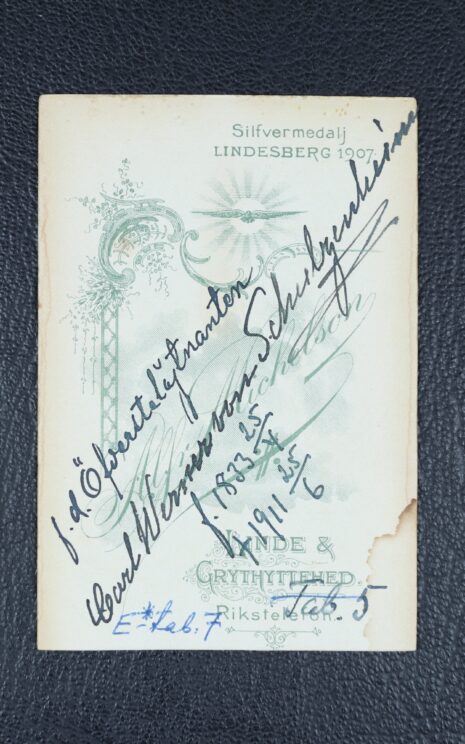 Silfvermedalj
LINDESBERG 1907.
f.d. Öfverstelöjtnanten
Carl Werner von Schulzenheim
f. 1833 25/4
† 1911 25/6
Michelson
LINDE &
GRYTHYTTEHED.
Rikstelefon.
Tab. 5
E* tab. 7